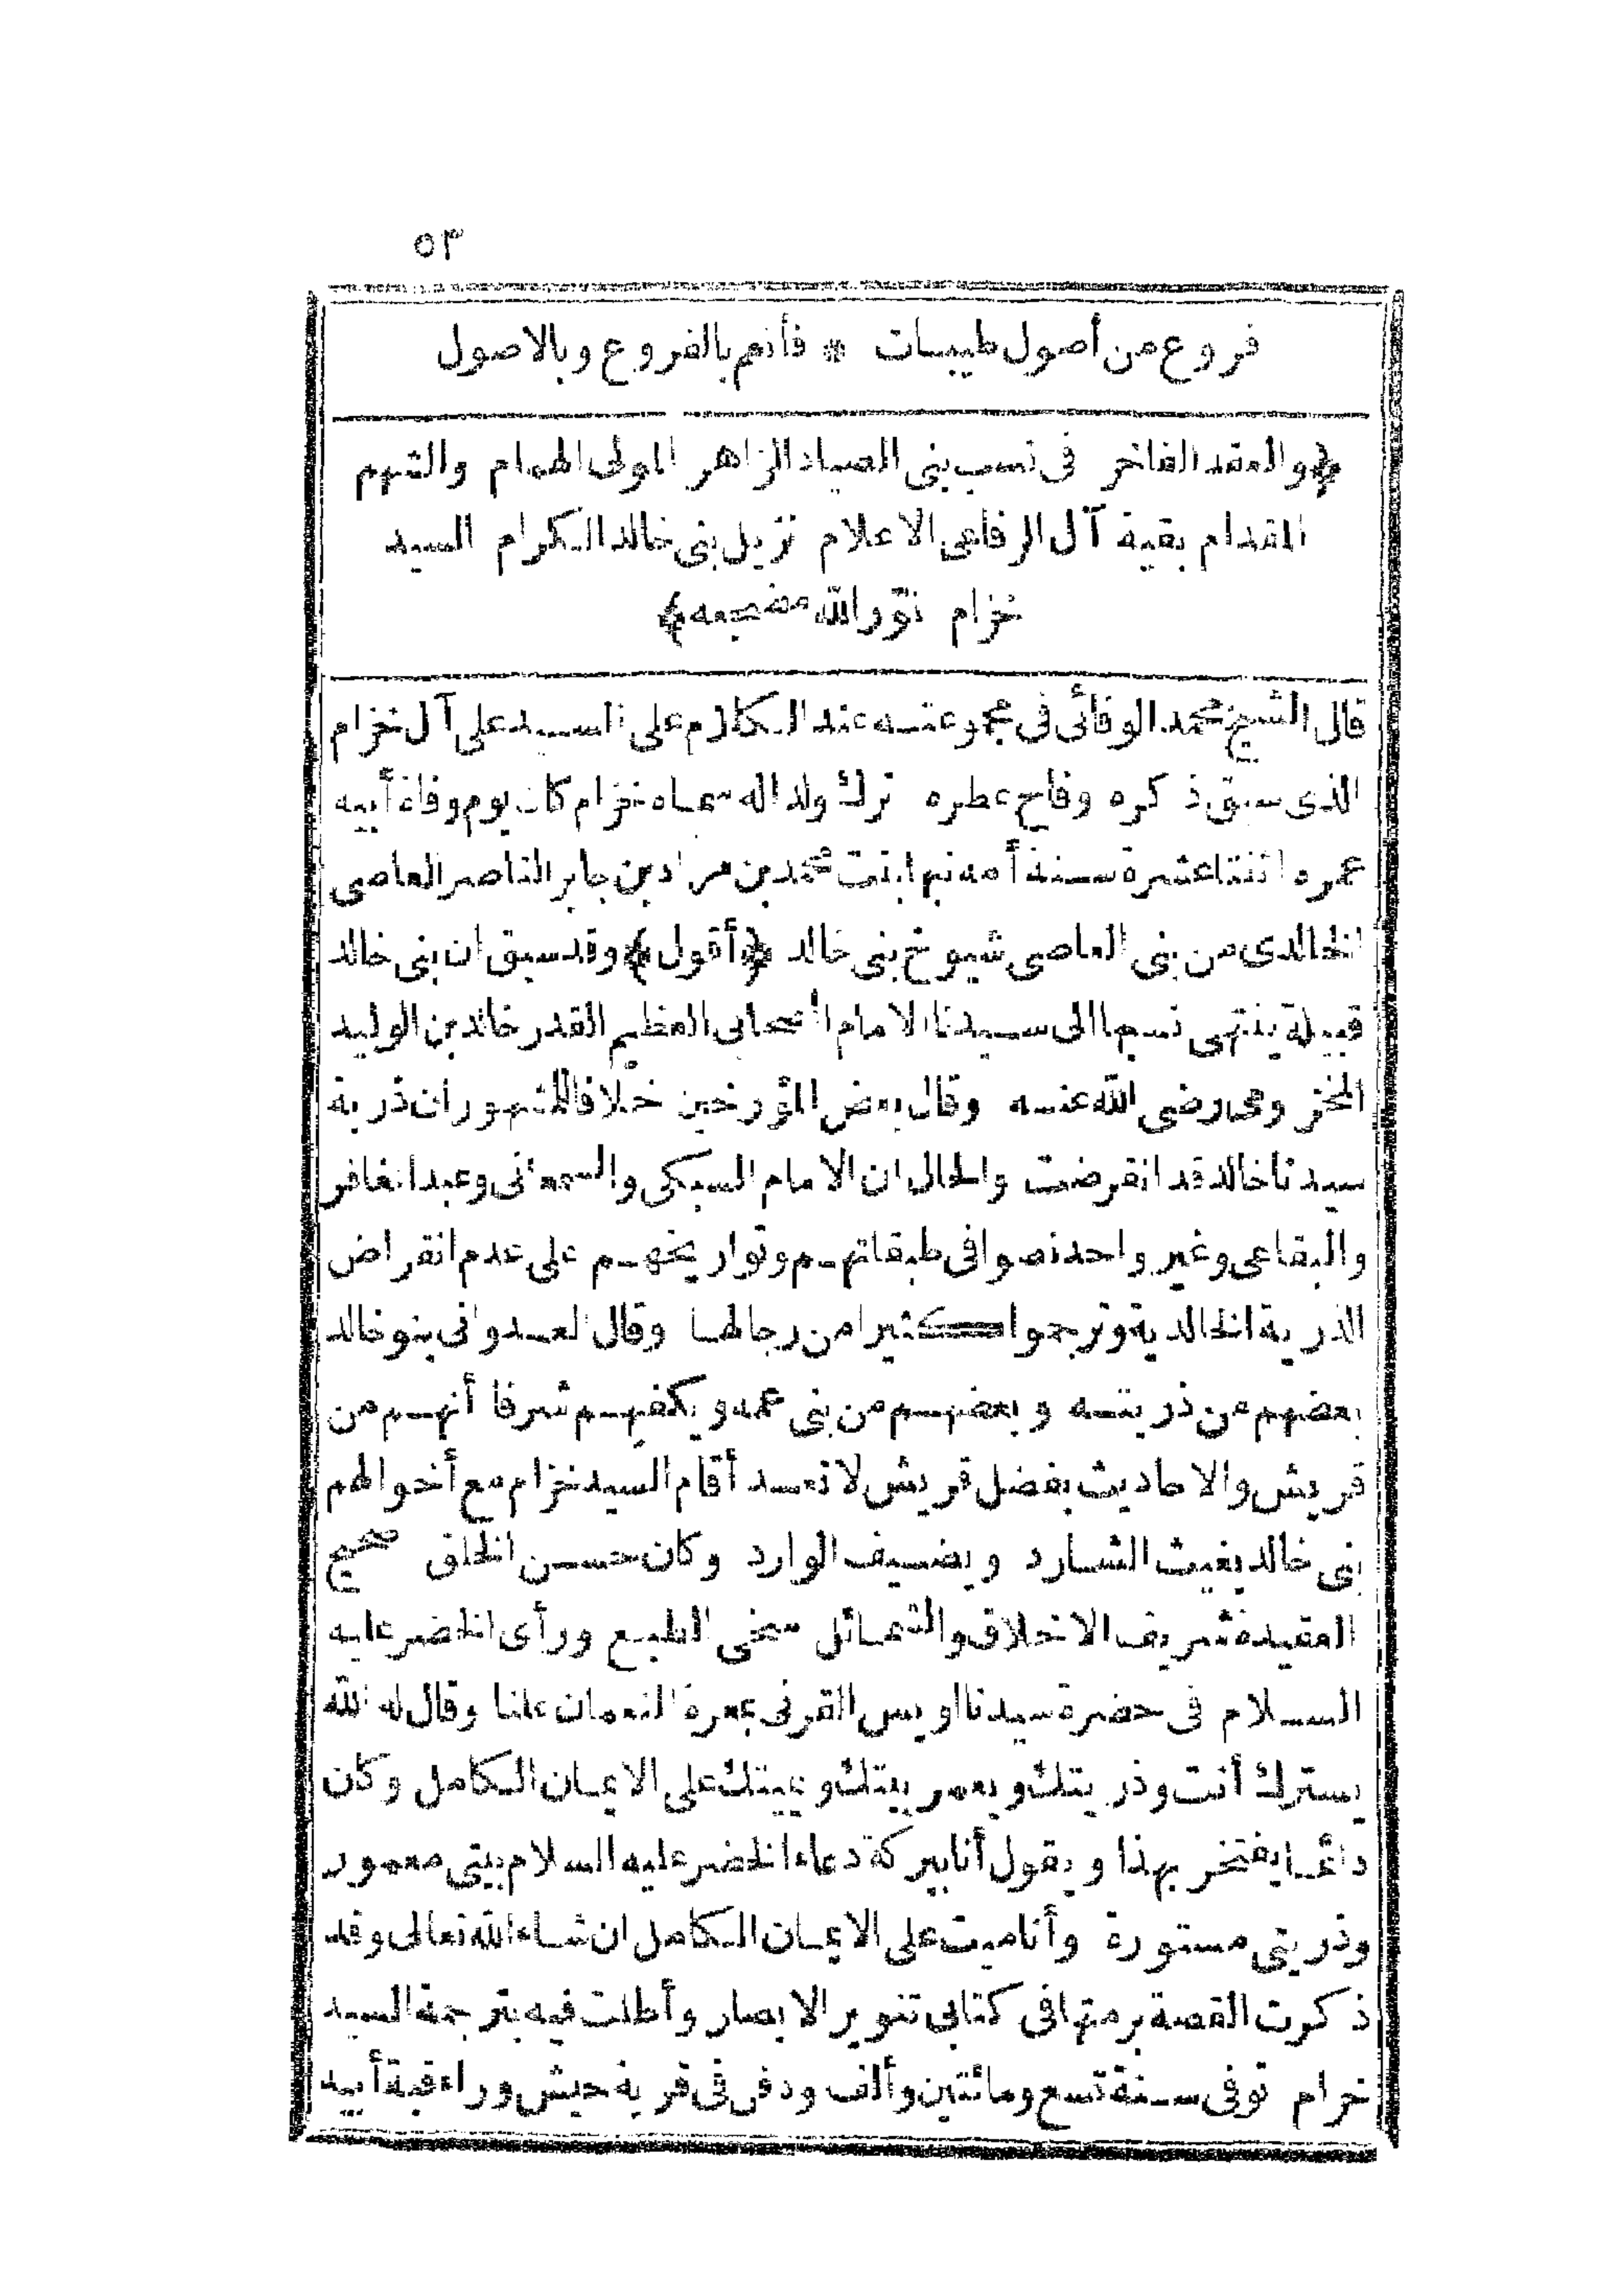 ٥٣
فروع من أصول طيبات * فأنعم بالفروع وبالاصول
﴿والعقد الفاخر في نسب بني الصياد الزاهر المولى الهمام والشهم
المقدام بقية آل الرفاعي الاعلام نزيل بني خالد الكرام السيد
خزام نور الله مضجعه﴾
قال الشيخ محمد الوفائى فى مجموعته عند الكلام على السيد على آل خزام
الذى سبق ذكره وفاح عطره ترك ولدا له سماه خزام كان يوم وفاة أبيه
عمره اثنتا عشرة سنة أمه نهابنت محمد بن مراد بن جابر الناصر العاصى
الخالدى من بنى العاصى شيوخ بنى خالد ﴿أقول﴾ وقد سبق ان بنى خالد
قبيلة ينتهى نسبها الى سيدنا الامام الصحابى العظيم القدر خالد بن الوليد
المخزومى رضى الله عنه وقال بعض المؤرخين خلافا للمشهور ان ذرية
سيدنا خالد قد انقرضت والحال ان الامام السبكى والسمعانى وعبد الغافر
والبقاعى وغير واحد نصوا فى طبقاتهم وتواريخهم على عدم انقراض
الذرية الخالدية وترجموا كثيرا من رجالها وقال العدوانى بنو خالد
بعضهم من ذريته وبعضهم من بنى عمه ويكفيهم شرفا أنهم من
قريش والاحاديث بفضل قريش لا تعد أقام السيد خزام مع أخوالهم
بنى خالد يغيث الشارد ويضيف الوارد وكان حسن الخلق صحيح
العقيدة شريف الاخلاق والشمائل سخى الطبع ورأى الخضر عليه
السلام فى حضرة سيدنا اويس القرنى بمعرة النعمان علنا وقال له الله
يسترك أنت وذريتك ويعمر بيتك ويميتك على الايمان الكامل وكان
دائما يفتخر بهذا ويقول أنا ببركة دعاء الخضر عليه السلام بيتى معمور
وذريتى مستورة وأنا ميت على الايمان الكامل ان شاء الله تعالى وقد
ذكرت القصة برمتها فى كتابى تنوير الابصار وأطلت فيه بترجمة السيد
خزام توفى سنة تسع ومائتين وألف ودفن فى قرية حيش وراء قبة أبيه